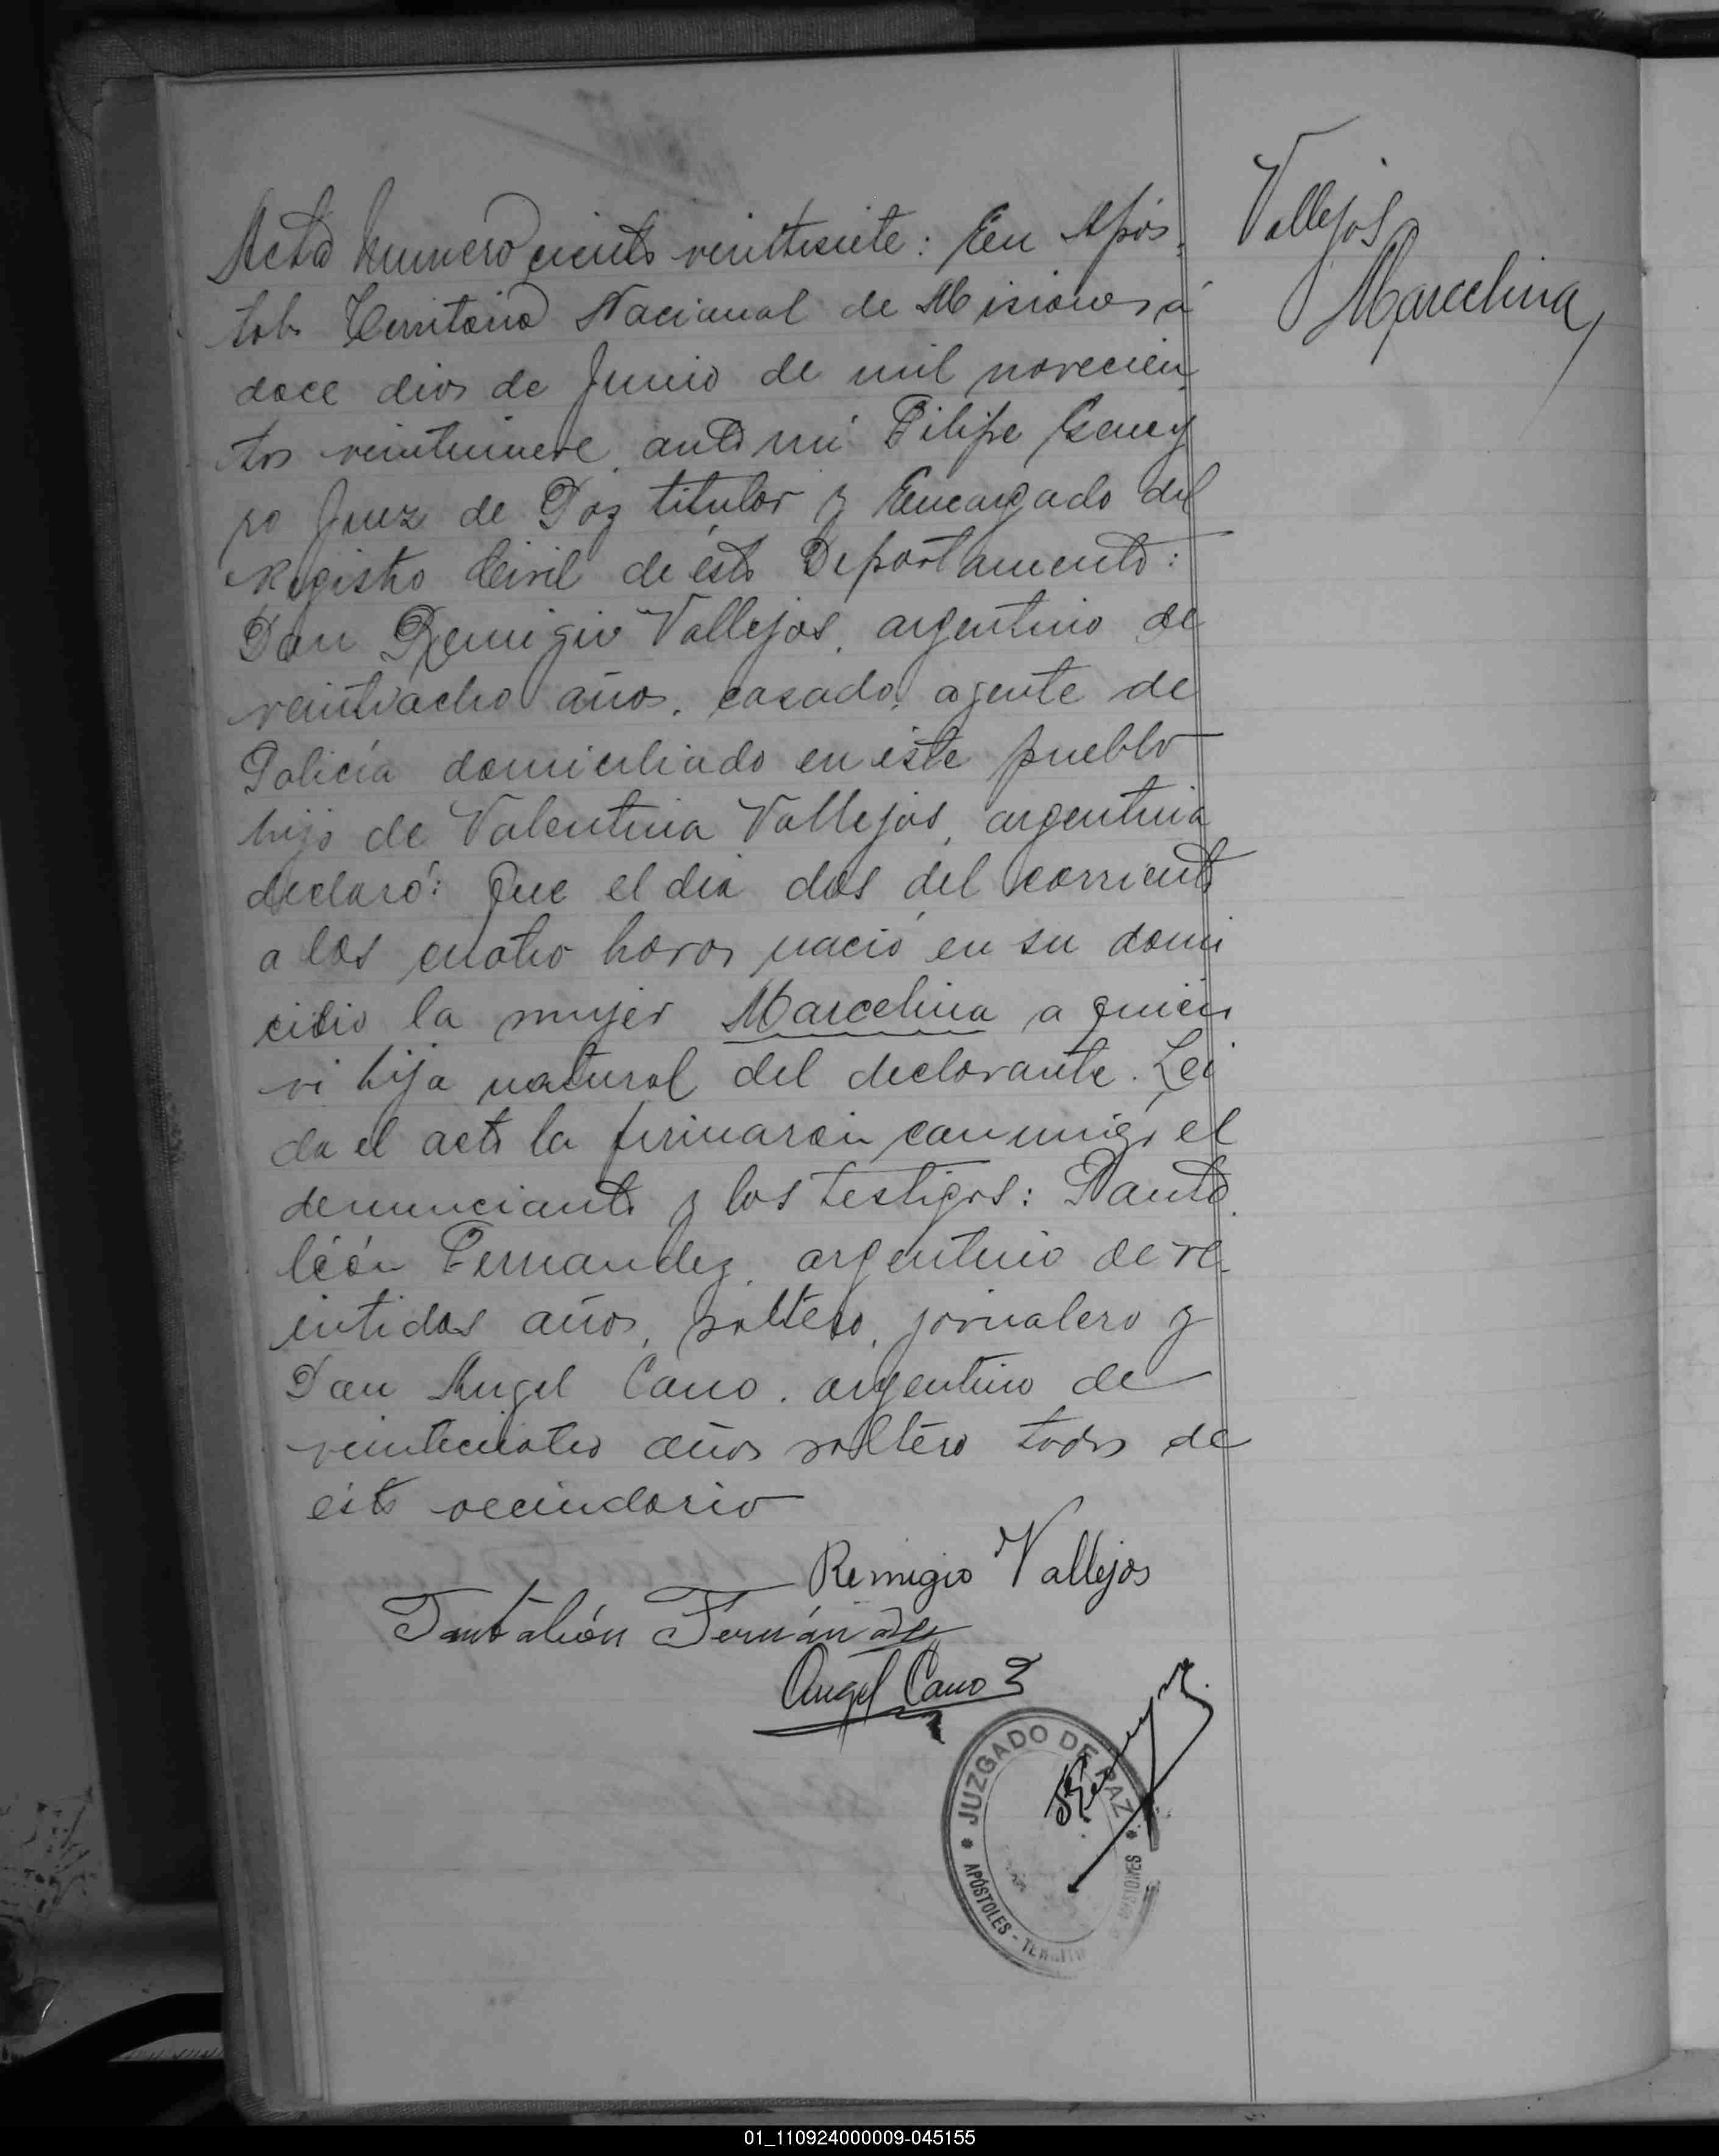 Vallejos
Marcelina
Acta numero ciento veintisiete: En Após
toles Territorio Nacional de Misiones á
doce dias de Junio de mil novecien
tos veintinueve, ante mi Felipe
ro Juez de Paz titular y Encargado del
Registro Civil de éste Departamento:
Don Remigio Vallejos, argentino de
veintiocho años, casado, agente de
Policía domiciliado en éste pueblo
hijo de Valentina Vallejos, argentina
declaró: Que el dia dos del corriente
a las cuatro horas nació en su domi
cilio la mujer Marcelina a quien
vi hija natural del declarante. Lei
da el acta la firmaron conmigo el
denunciante y los testigos: Panta
león Fernandez, argentino de ve
intidos años, soltero, jornalero y
Don Angel Cano, argentino de
veinticuatro años soltero todos de
éste vecindario
Remigio Vallejos
Pantaleón Fernández
Angel Cano
JUZGADO DE PAZ
APÓSTOLES - MISIONES
01_110924000009-045155